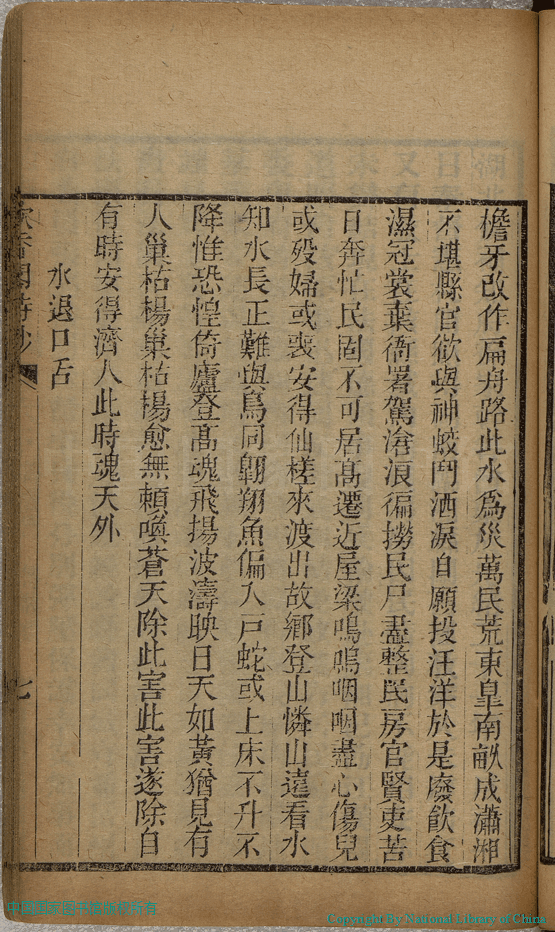 檐牙改作扁舟路此水為災萬民荒東皐南畝成瀟湘
不堪縣官欲與神蛟鬥洒淚自願投汪洋於是廢飲食
濕冠裳棄衙署駕滄浪徧撈民尸盡整民房官賢吏苦
日奔忙民固不可居高遷近屋梁嗚嗚咽咽盡心傷兒
或殁婦或喪安得仙槎來渡出故鄉登山憐山遠看水
知水長正難與鳥同翺翔魚偏入戸蛇或上床不升不
降惟恐惶倚廬登髙魂飛揚波濤映日天如黃猶見有
人巢枯楊巢枯楊愈無頼喚蒼天除此害此害遂除自
有時安得濟人此時魂天外
水退口占
七
Copyright By National Library of China